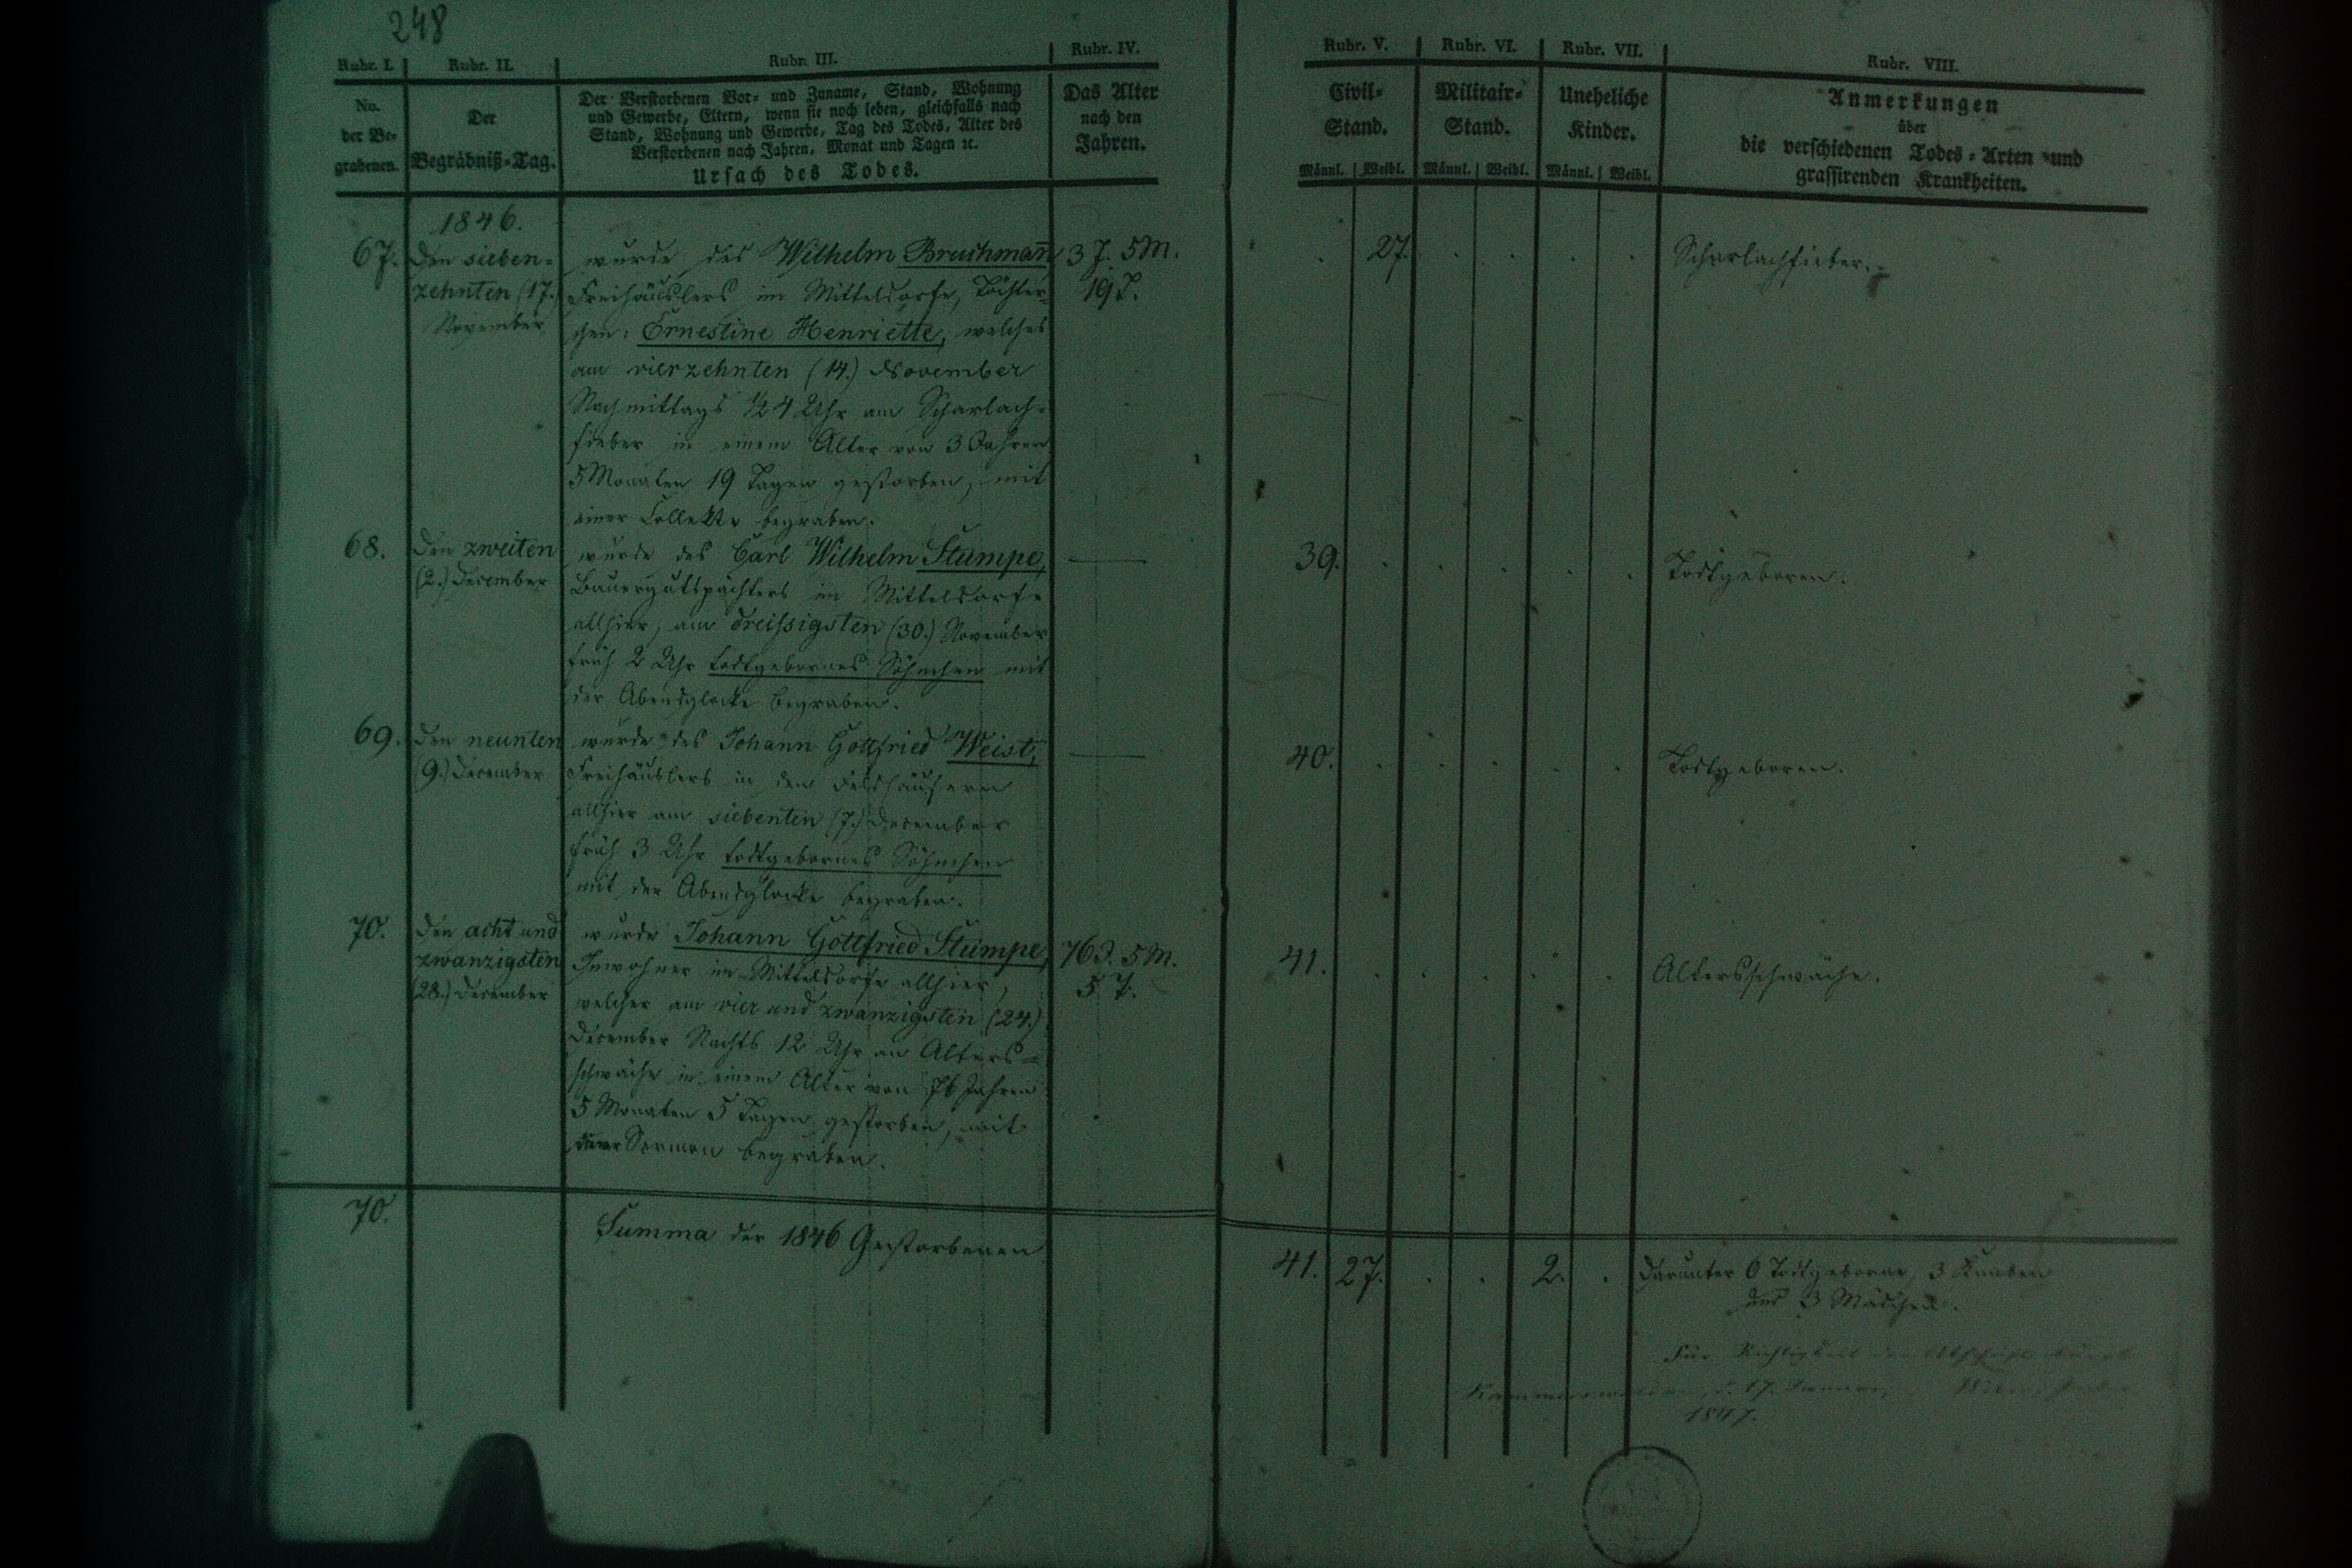 248
Rubr. I. Rubr. II. Rubr. III. Rubr. IV.
No. der Be- grabenen.
Der Begräbniß-Tag.
Der Verstorbenen Vor- und Zuname, Stand, Wohnung
und Gewerbe, Eltern, wenn sie noch leben, gleichfalls nach
Stand, Wohnung und Gewerbe, Tag des Todes, Alter des
Verstorbenen nach Jahren, Monat und Tagen ꝛc.
Ursach des Todes.
Das Alter
nach den
Jahren.
1846.
67. Den sieben-
zehnten (17.)
November
wurde des Wilhelm Bruchmañ
Freihäuslers im Mitteldorfe, Töchter-
chen: Ernestine Henriette, welches
am vierzehnten (14.) November
Nachmittags ½4 Uhr am Scharlach-
fieber in einem Alter von 3 Jahren
5 Monaten 19 Tagen gestorben, mit
einer Collekte begraben.
3 J. 5 M.
19 T.
68. Den zweiten
(2.) December
wurde des Carl Wilhelm Stumpe,
Bauergutspächters im Mitteldorfe
allhier, am dreissigsten (30.) November
früh 2 Uhr todtgebornes Söhnchen mit
der Abendglocke begraben.
69. Den neunten
(9.) December
wurde des Johann Gottfried Weist,
Freihäuslers in den Feldhäusern
allhier am siebenten (7.) December
früh 3 Uhr todtgebornes Söhnchen
mit der Abendglocke begraben.
70. Den acht und
zwanzigsten
(28.) December
wurde Johann Gottfried Stumpe,
Inwohner im Mitteldorfe allhier,
welcher am vier und zwanzigsten (24.)
December Nachts 12 Uhr an Alters-
schwäche in einem Alter von 76 Jahren
5 Monaten 5 Tagen gestorben, mit
Sermon begraben.
76 J. 5 M.
5 T.
70. Summa der 1846 Gestorbenen
Rubr. V. Rubr. VI. Rubr. VII. Rubr. VIII.
Civil-
Stand.
Militair-
Stand.
Uneheliche
Kinder.
Anmerkungen
über
die verschiedenen Todes-Arten und
grassirenden Krankheiten.
Männl. Weibl. Männl. Weibl. Männl. Weibl.
27. Scharlachfieber.
39. Todtgeboren.
40. Todtgeboren.
41. Altersschwäche.
41. 27. 2. darunter 6 Todtgeborne, 3 Knaben
und 3 Mädchen.
Für Richtigkeit der
d. 17. Januar
1847.